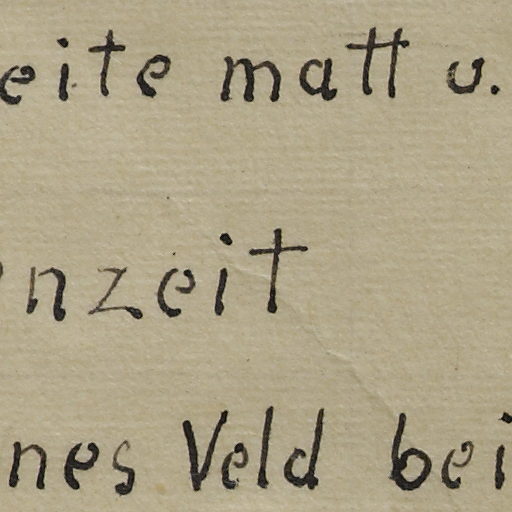 eite matt u.
nzeit
nes Veld bei